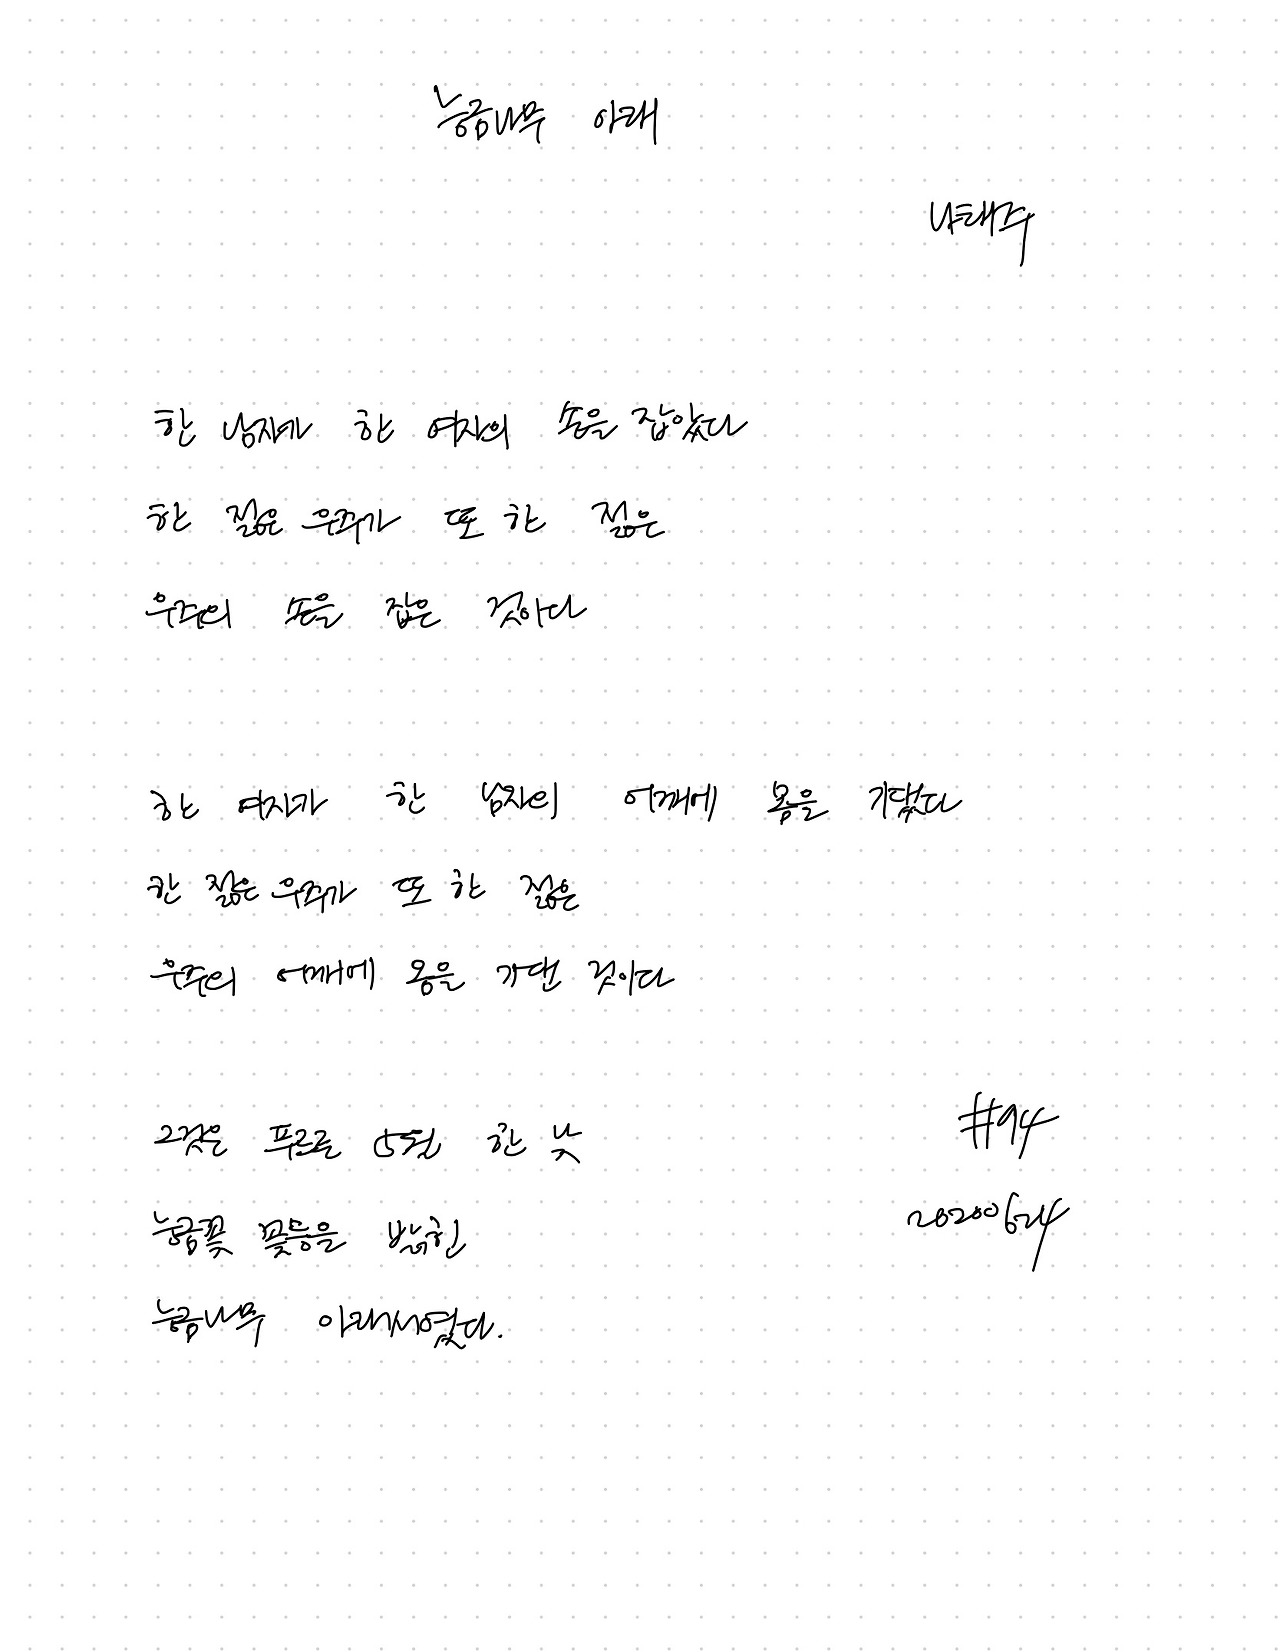 능금나무 아래
나태주
한 남자가 한 여자의 손을 잡았다
한 젊은 우주가 또 한 젊은
우주의 손을 잡은 것이다
한 여자가 한 남자의 어깨에 몸을 기댔다
한 젊은 우주가 또 한 젊은
우주의 어깨에 몸을 기댄 것이다
그것은 푸르른 5월 한 낮
능금꽃 꽃등을 밝힌
능금나무 아래서였다.
#94
20200624